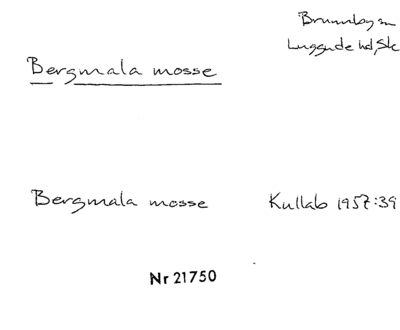 Brunnby sn
Luggude hd, Sk
Bergmala mosse
Bergmala mosse Kullab 1957:39
Nr 21750